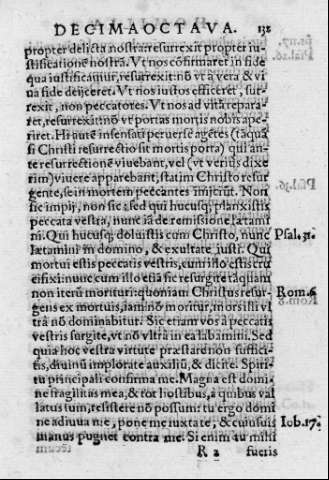 DECIMAOCTAVA. 132
propter delicta nostra: resurrexit propter iu-
stificationē nostrā. Vt nos cōfirmaret in fide
qua iustificamur, resurrexit: nō vt a vera & vi
ua fide deijceret. Vt nos iustos efficeret, sur-
rexit, non peccatores. Vt nos ad vitā repara-
ret, resurrexit: nō vt portas mortis nobis ape-
riret. Hi autē insensati peruerse agētes (tāquā
si Christi resurrectio sit mortis porta) qui an-
te resurrectionē viuebant, vel (vt verius dixe
rim) viuere apparebant, statim Christo resur
gente, se in mortem peccantes imijciūt. Non
sic impij, non sic: sed qui hucusq; planxistis
peccata vestra, nunc iā de remissione lætami
ni. Qui hucusq; doluistis cum Christo, nunc Psal. 31.
lætamini in domino, & exultate iusti. Qui
mortui estis peccatis vestris, cum illo estis cru
cifixi: nunc cum illo etiā sic resurgite tāquam
non iterū morituri: quoniam Christus resur- Rom. 6
gens ex mortuis, iam nō moritur, mors illi vl
trā nō dominabitur. Sic etiam vos a peccatis
vestris surgite, vt nō vltrā in ea labamini. Sed
quia hoc vestra virtute præstare non suffici-
tis, diuinū implorate auxiliū, & dicite. Spiri-
tu principali confirma me. Magna est domi-
ne fragilitas mea, & tot hostibus, a quibus val
latus sum, resistere nō possum: tu ergo domi
ne adiuua me, pone me iuxta te, & cuiusuis Iob. 17.
manus pugnet contra me. Si enim tu mihi
R 2 fueris